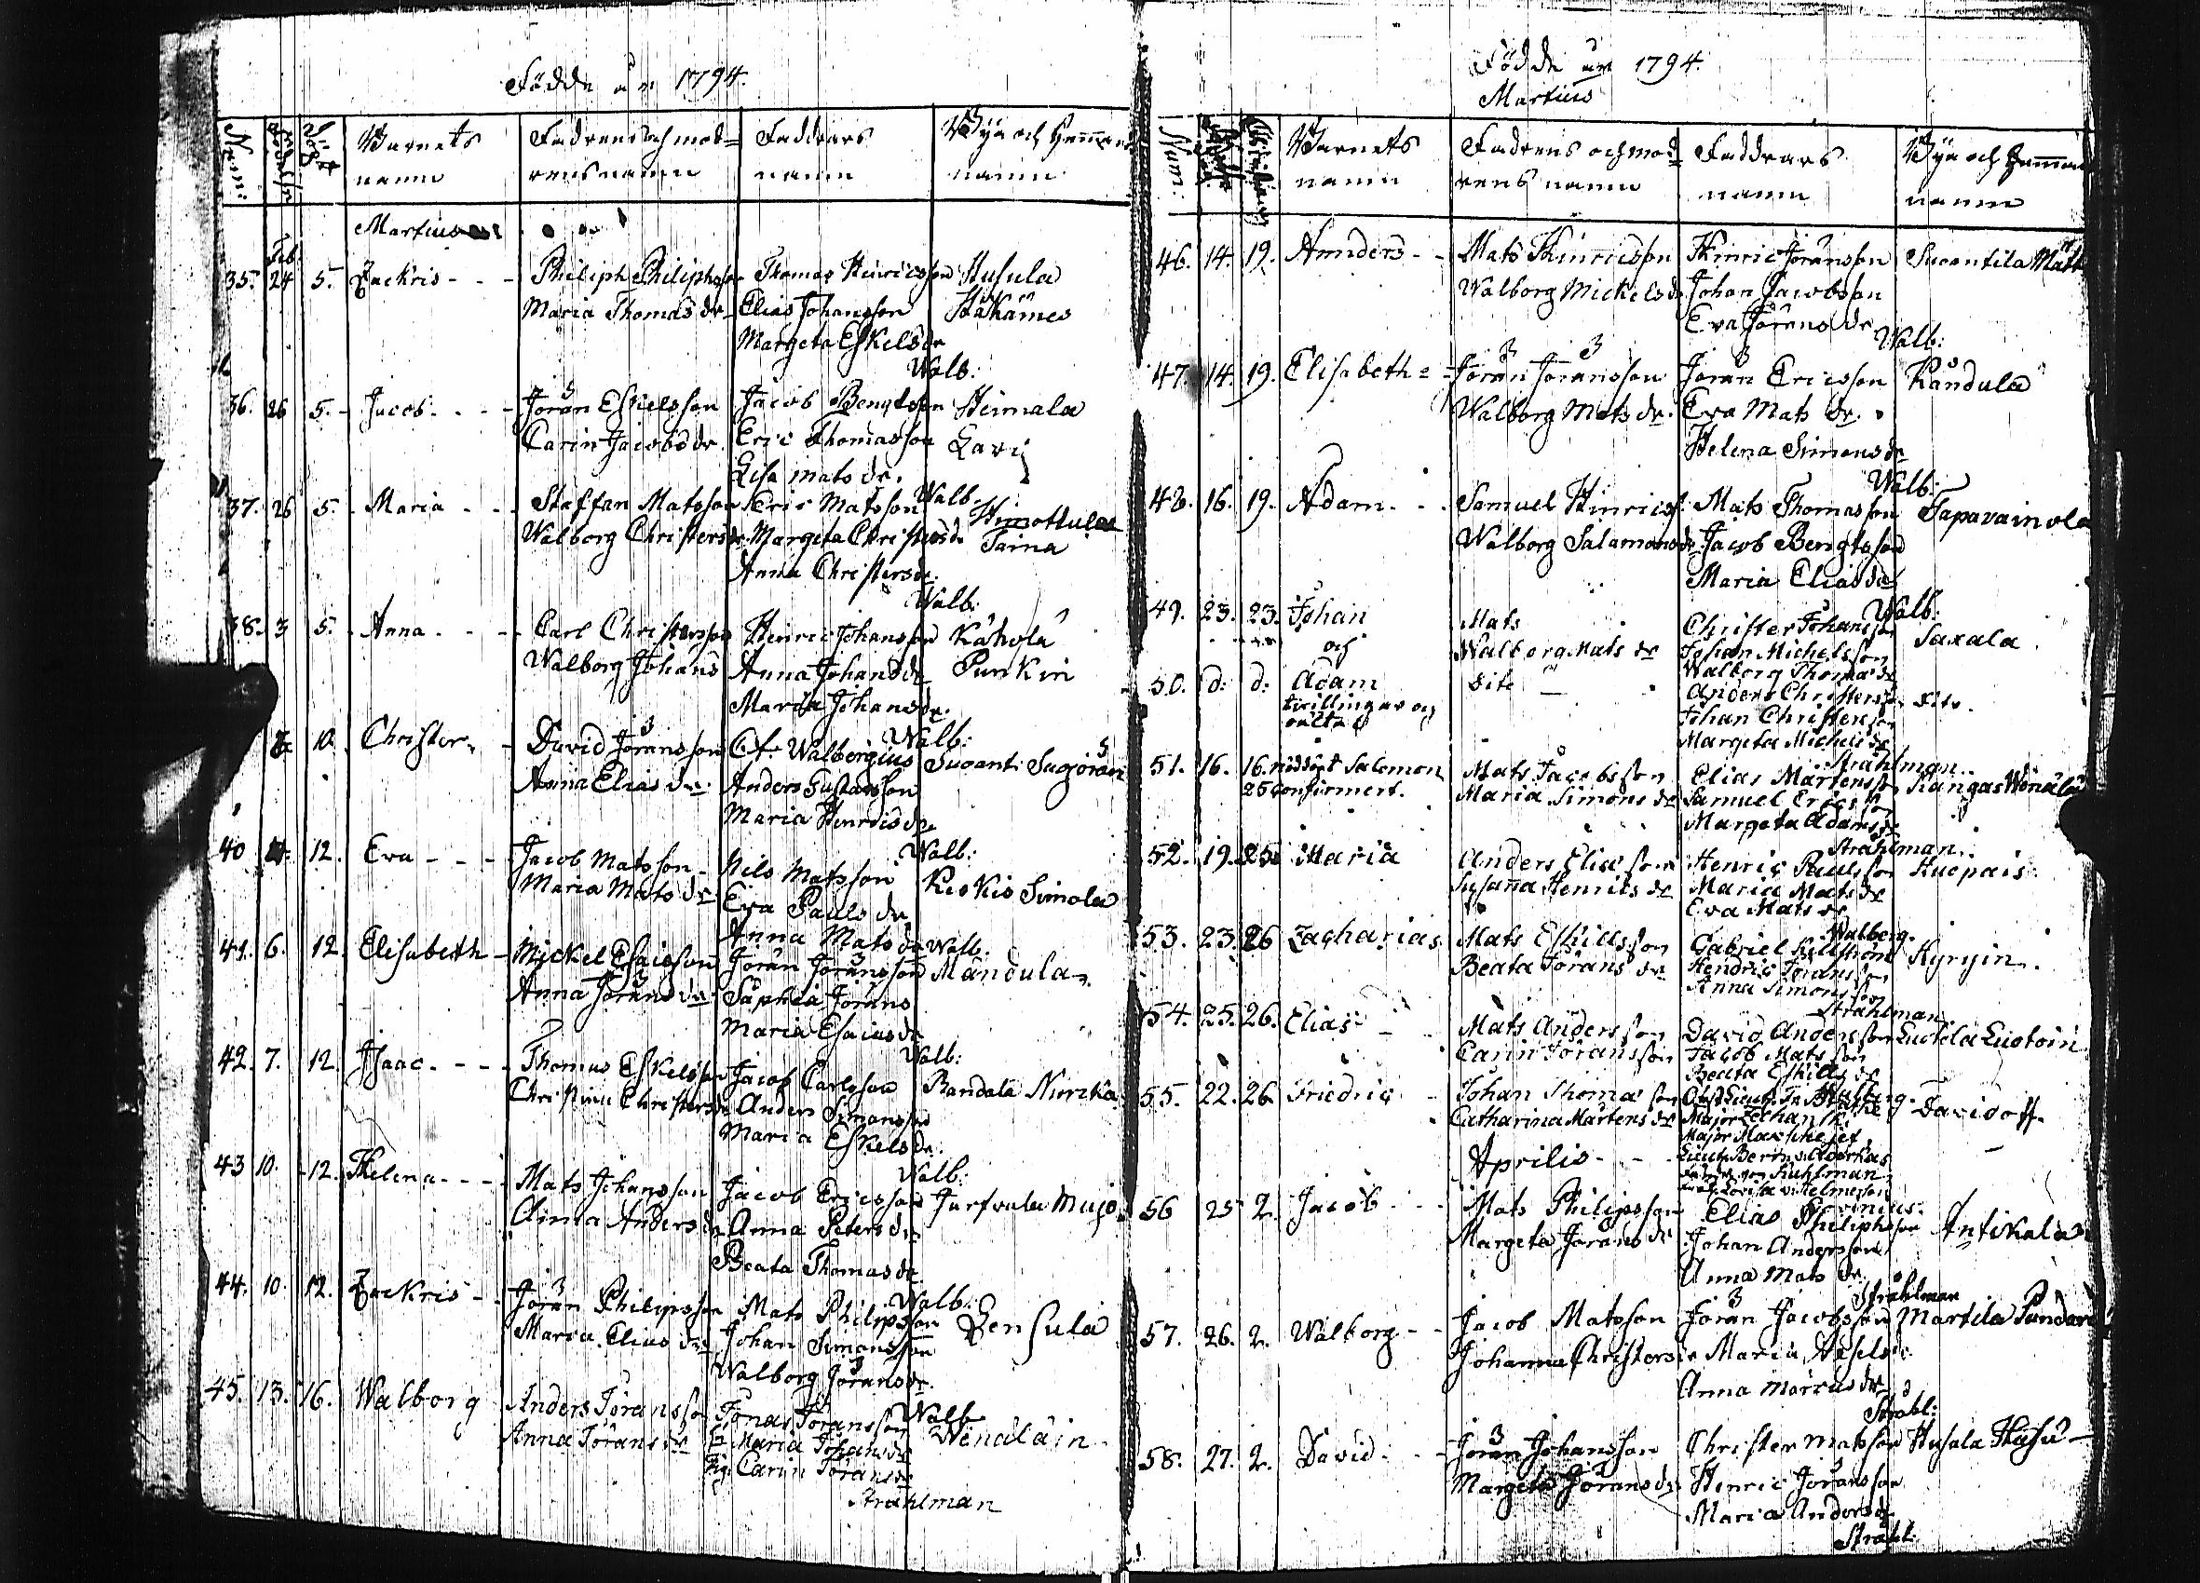 Födde år 1794.
Num: födelse döpt Barnets namn Fadrens och modrens namn Faddrars namn Byn och Hemmans namn
Martius
Feb.
35. 24 5. Zackris - - - Philiph Philiphsson Thomas Hinricsson Husula
Maria Thomas dr Elias Johansson Häkämes
Margeta Eskels dr
Walb:
36. 26 5. - Jacob - - - Jöran Eskelsson Jacob Bengtson Heimala
Carin Jacobs dr. Eric Thomasson Lari
Lisa mats dr.
Walb.
37. 26 5. - Maria - - Staffan Matsson Eric Matsson
Walborg Christers dr Margeta Christers dr Taina
Anna Christers dr.
Walb:
38. 3 5. - Anna - - - Carl Christersson Henric Johansson Kähölä
Walborg Johans Anna Johans dr Punkin
Maria Johans dr.
Walb:
10. Christer - David Jöransson C.f. Walbergius Suoanti Sugjöran
Anna Elias dr. Anders Gustafsson
Maria Henrics dr
Walb:
40 12. Eva - - - Jacob Matsson - Nils Matsson Keskis Simola
Maria Mats dr Eva Pauls dr
Anna Mats dr
Walb.
41. 6. 12. Elisabeth - Mickel Esaisson Jöran Jöransson Mandula
Anna Jörans dr Saphia Jörans
Maria Esaias dr
Walb:
42. 7. 12. Isaac - - - Thomas Eskelsson Jacob Carlsson Bandala Nurcka
Christina Christers dr Anders Simonsson
Maria Eskels dr.
Walb:
43 10. 12. Helena - - - Mats Johansson Jacob Ericsson Jurfvala Mujo
Anna Anders dr Anna Peters dr
Beata Thomas dr
Walb:
44. 10. 12. Zackris - - Jöran Philipsson Mats Philipsson Densula
Maria Elias dr Johan Simonsson
Walborg Jörans dr.
Walb
45. 13. 16. Walborg Anders Jöransson Jonas Jöransson Wenäläin
Anna Jörans dr Maria Johans dr
Pig. Carin Jörans dr
Strahlman
Födde år 1794.
Martius
Num: Barnets namn Fadrens och modrens namn Faddrars namn Byn och Hemmans namn
46. 14. 19. Annders - - Mats Hinricsson Hinric Jöransson Suoantila Matt
Walborg Mickels dr Johan Jacobsson
Eva Jörens dr
Walb:
47. 14. 19. Elisabeth - Jöran Joransson Joran Ericsson Kandula
Walborg Mats dr. Eva Mats dr.
Helena Simons dr
Walb:
48. 16. 19. Adam - - - Samuel Hinricss. Mats Thomasson Tapavainola
Walborg Salamons dr Jacob Bengtsson
Maria Elias dr
Walb:
49. 23. 23. Johan Mats Christer Johansson Saxala
och Walborg Mats dr Johan Michelsson
Walborg Thomas dr
50. d: d: Adam dito Anders Christersson dito.
tvillingar och Johan Christersson
oälta Margeta Michels dr
Strahlman.
51. 16. 16. nöddöpt Salomon Mats Jacobsson Elias Mårtensson Kangas Wenälä
25 Confirmert. Maria Simons dr Samuel Ericsson
Margeta Adams dr
Strahlman.
52. 19. 25. Maria Anders Eliasson Henric Paulsson Kuepais
Susana Henrics dr Maria Mats dr
Eva Mats dr
Walberg.
53. 23. 26 Zacharias Mats Eskillsson Gabriel Kyryin.
Beata Jörans dr Hendric Jöransson
Anna Simonsson
Strahlman.
54. 25. 26. Elias - Mats Andersson David Andersson Lustela Lustoin
Carin Joransson Jacob Matsson
Beata Eskills dr
55. 22. 26. Friedric - Johan Thomasson Davidoff.
Catharina Mårtens dr Major
Major
Aprilis - - -
56 25 2. Jacob - - - Mats Philipsson Elias Philiphsson Antikala
Margeta Jörans dr Johan Andersson
Anna Mats dr.
Strahlman
57. 26. 2. Walborg - - Jacob Matsson Joran Jacobsson Martila Pundari
Johanna Christers dr Maria Axels dr
Anna Marcus dr
Strahl:
58. 27. 2. David - - - Jöran Johansson Christer Matsson Husala Husu -
Margeta Jörans dr Henric Jöransson
Maria Anders dr
Strahl: